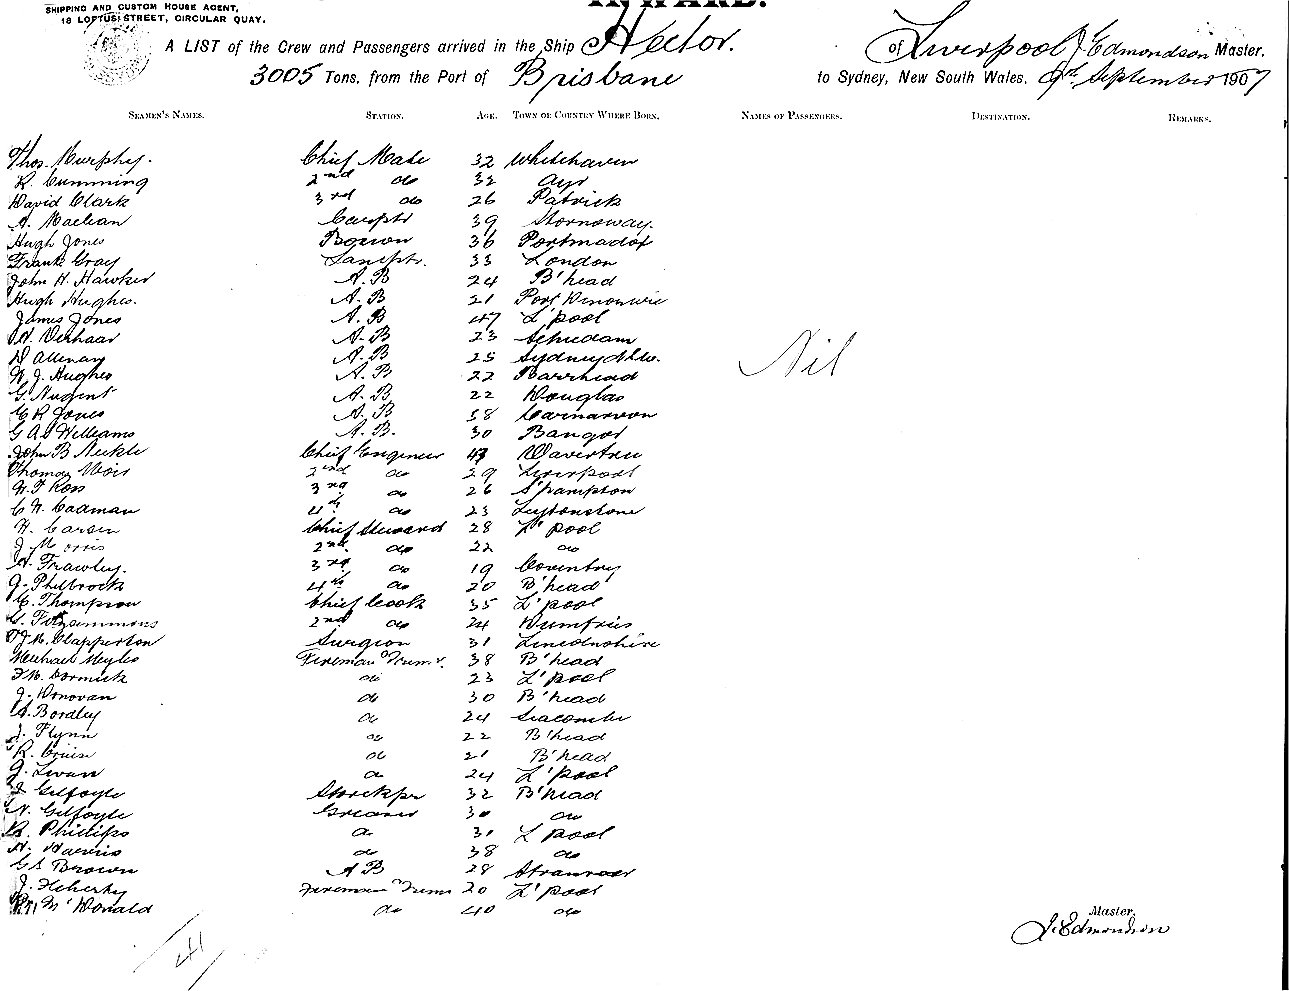 SHIPPING AND CUSTOM HOUSE AGENT,
18 LOFTUS STREET, CIRCULAR QUAY.
INWARD.
A LIST of the Crew and Passengers arrived in the Ship Hector. of Liverpool J Edmondson Master,
3005 Tons, from the Port of Brisbane to Sydney, New South Wales, 9th September 1907
SEAMEN'S NAMES. STATION. AGE. TOWN OR COUNTRY WHERE BORN. NAMES OF PASSENGERS. DESTINATION. REMARKS.
Thos. Murphy. Chief Mate 32 Whitehaven
R. Cumming 2nd do 32 Ayr
David Clark 3rd do 26 Patrick
A. Maclean Carptr 39 Stornoway.
Hugh Jones Boswn 36 Portmadox
Frank Gray Lamptr. 33 London
John H. Hawker A.B 24 B'head
Hugh Hughes. A.B 21 Port
James Jones A.B 47 L'pool
Verhaar A.B 23 Schiedam
D Allenay A.B 25 Sydney
J. Hughes A.B 22 Barrhead
G. Nugent A.B 22 Douglas
Nil
C R Jones A.B 38 Carnarvon
G A Williams A.B. 30 Bangor
John B Meikle Chief Engineer 43 Wavertree
Thomas Weir 2nd do 29 Liverpool
Ross 3rd do 26 S'hampton
C H. Cadman 4th do 23 Leytonstone
H. Carsen Chief Steward 28 L'pool
J Morris 2nd do 22 do
Frawley. 3rd do 19 Coventry
J. Philbrock 4th do 20 B'head
C. Thompson Chief Cook 35 L'pool
G. Fitzsimmons 2nd do 24 Dumfries
Clapperton Surgeon 31 Lincolnshire
Michael Myles Fireman Trimr. 38 B'head
Cormick do 23 L'pool
J. Donovan do 30 B'head
A. Bordley do 24 Seacombe
J. Flynn do 22 B'head
R. do 21 B'head
J. do 24 L'pool
Gilfoyle Storekpr 32 B'head
N. Gilfoyle Greaser 30 do
R. Phillips do 31 L'pool
Harris do 38 do
G S Brown A B 28 Stranraer
J. Fireman Trimr 20 L'pool
McDonald do 40 do
Master,
J. Edmondson
41